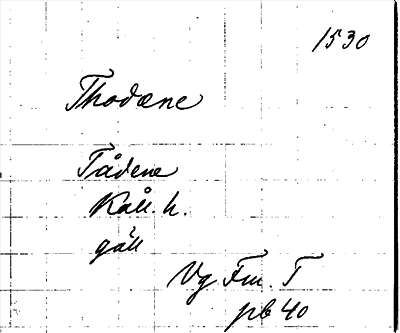 1530
Thodæne
Tådene
Kåll. h.
gäll
Vg Fm. T
pb 40